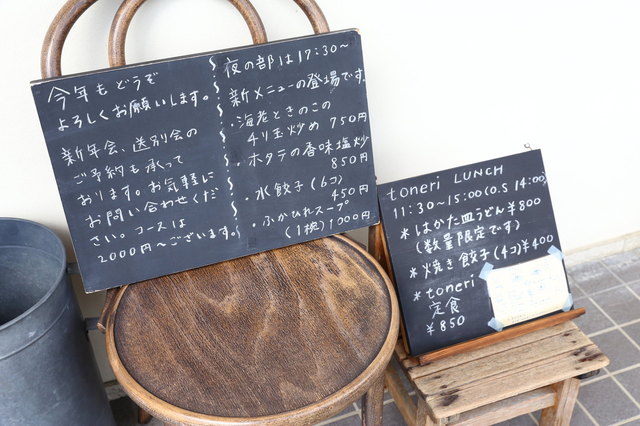 今年もどうぞ
よろしくお願いします。
新年会、送別会の
ご予約も承って
おります。お気軽に
お問い合わせくだ
さい。コースは
2000円〜ございます。
夜の部は17:30〜
新メニューの登場です。
・海老ときのこの
チリ玉炒め 750円
・ホタテの香味塩炒
850円
・水餃子(6コ)
450円
・ふかひれスープ
(1椀) 1000円
toneri LUNCH
11:30〜15:00(O.S 14:00)
*はかた皿うどん¥800
(数量限定です)
*焼き餃子(4コ)¥400
*toneri
定食
¥850